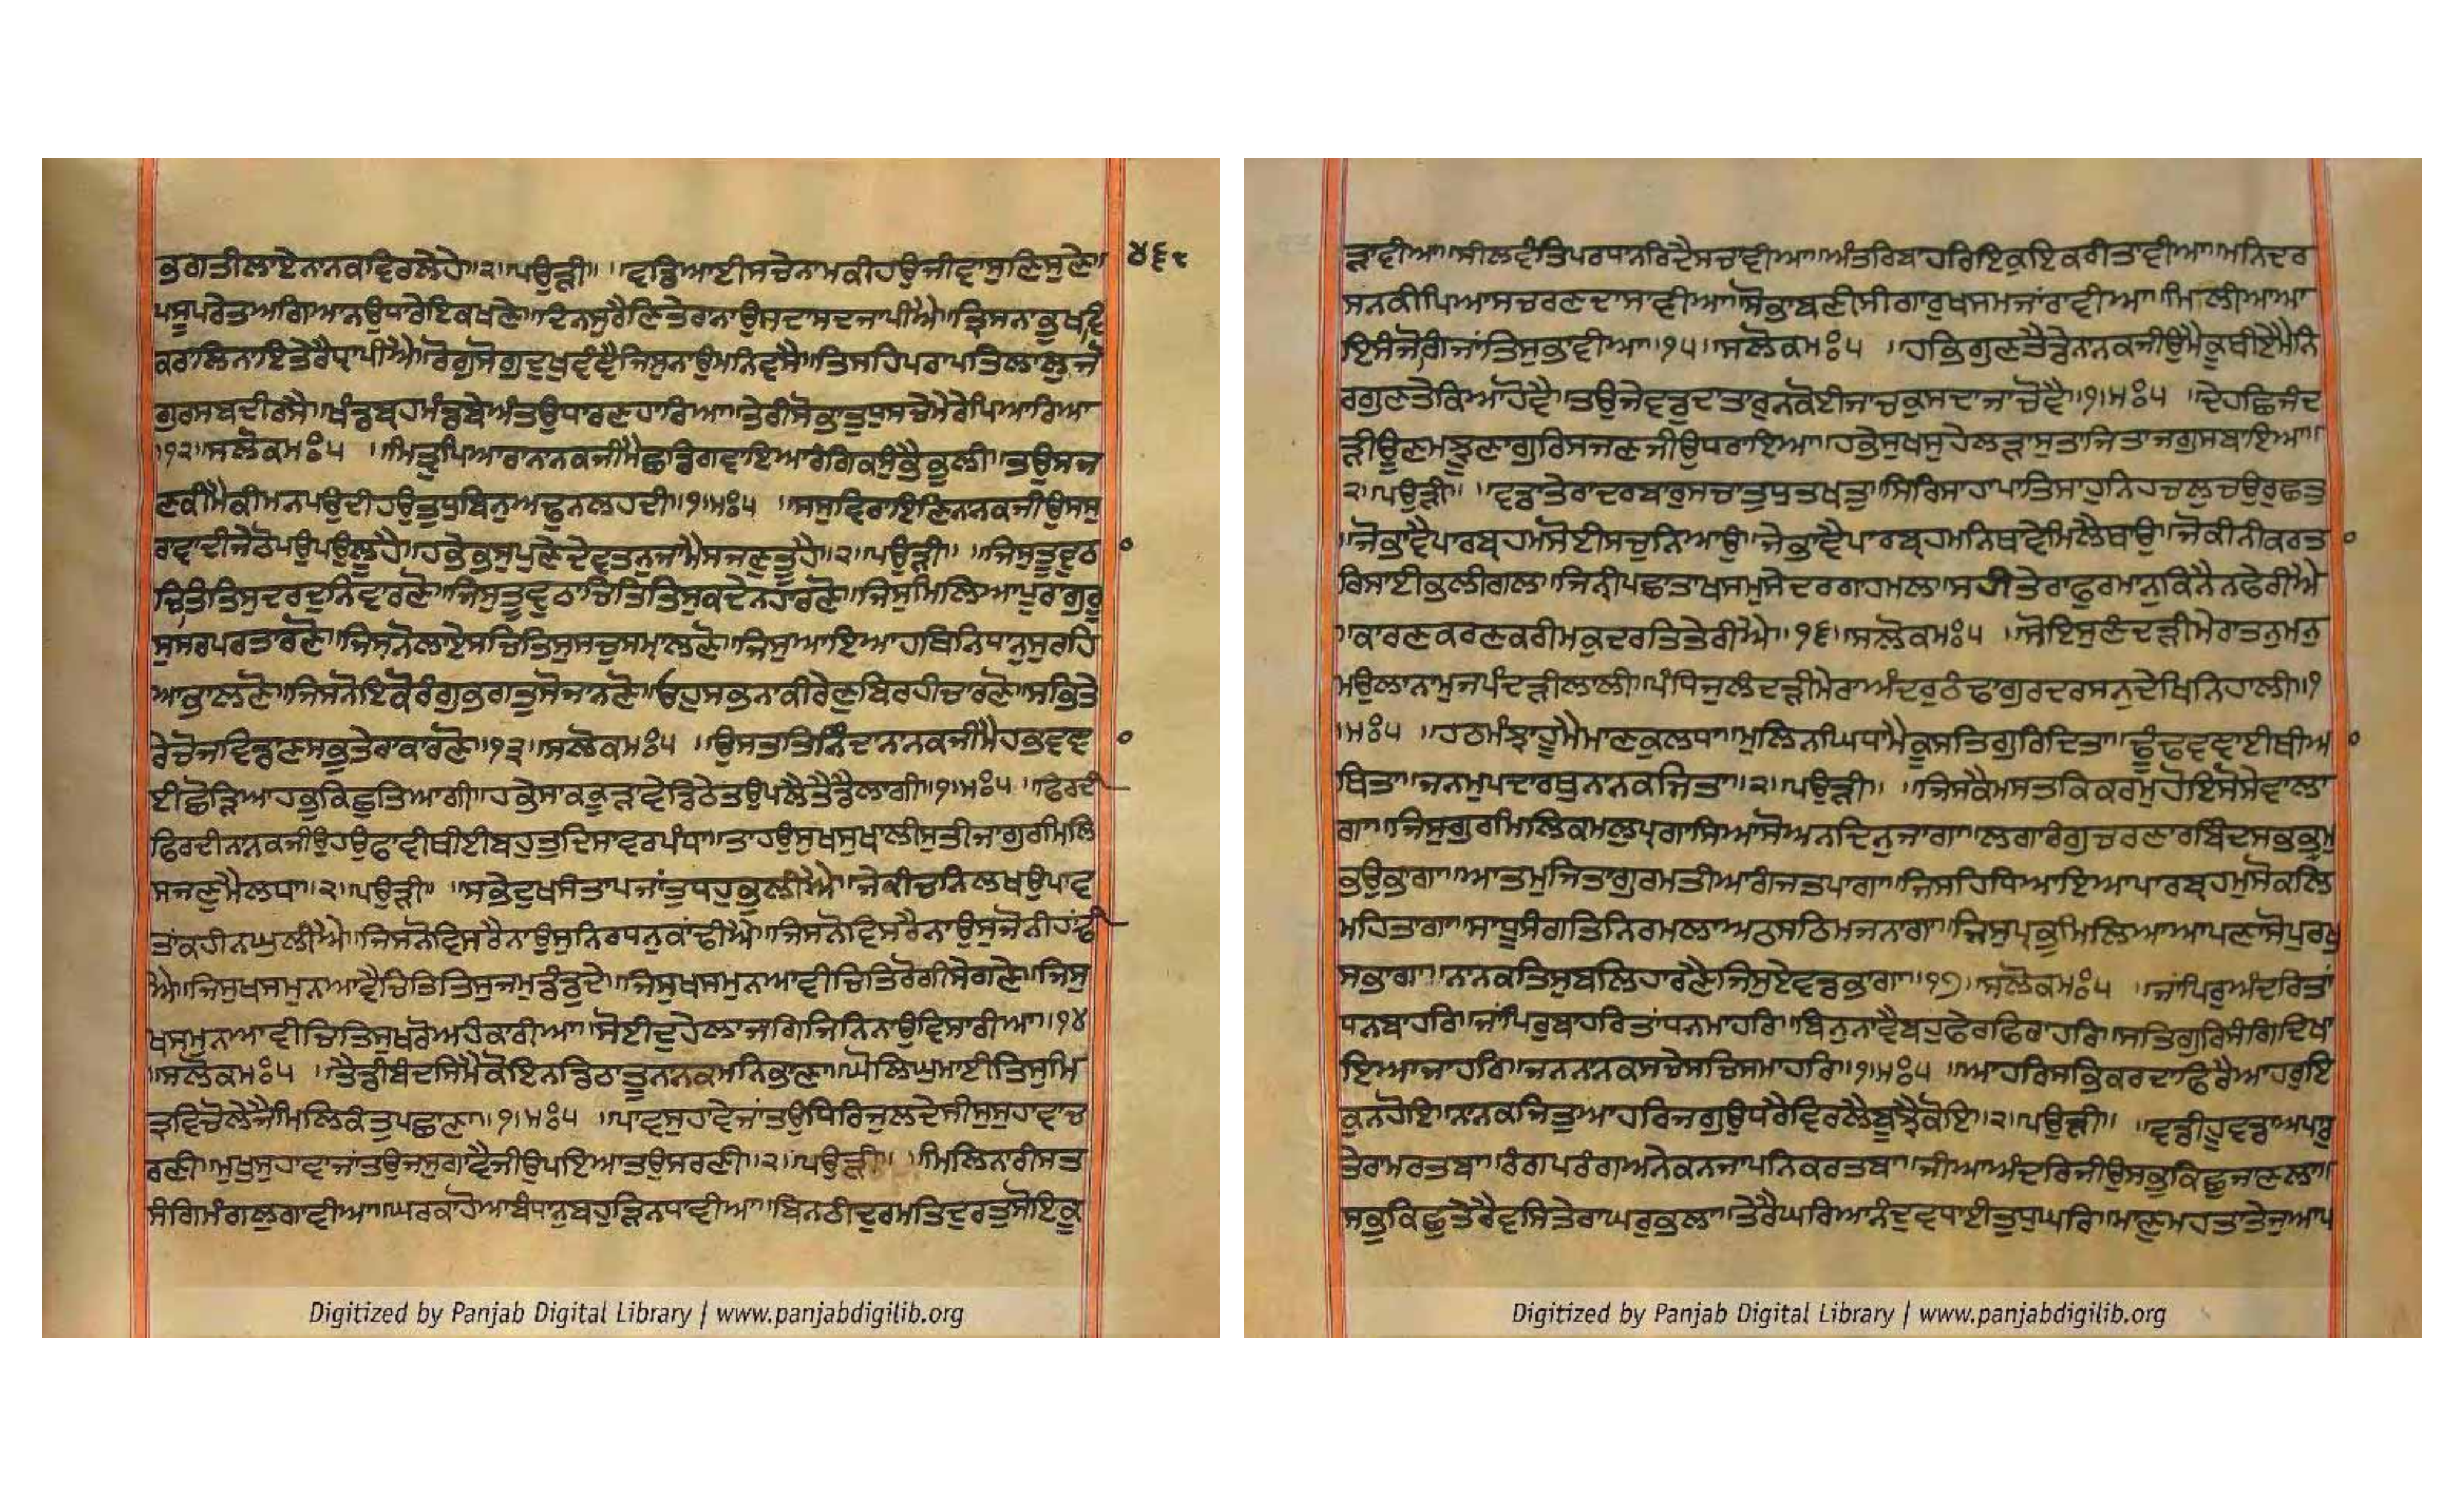 ਭਗਤੀਲਾਏਨਾਨਕਵਿਰਲੇਹੇ॥੨॥ਪਉੜੀ॥ ॥ਵਡਿਆਈਸਚੇਨਾਮਕੀਹਉਜੀਵਾਸੁਣਿਸੁਣੇ॥ ੪੬੯
ਪਸੂਪਰੇਤਅਗਿਆਨਉਧਾਰੇਇਕਖਣੇ॥ਦਿਨਸੁਰੈਣਿਤੇਰਾਨਾਉਸਦਾਸਦਜਾਪੀਐ॥ਤ੍ਰਿਸਨਾਭੁਖਵਿ
ਕਰਾਲਿਨਾਇਤੇਰੈਧ੍ਰਾਪੀਐ॥ਰੋਗੁਸੋਗੁਦੁਖੁਵੰਞੈਜਿਸੁਨਾਉਮਨਿਵਸੈ॥ਤਿਸਹਿਪਰਾਪਤਿਲਾਲੁਜੋ
ਗੁਰਸਬਦੀਰਸੈ॥ਖੰਡਬ੍ਰਹਮੰਡਬੇਅੰਤਉਧਾਰਣਹਾਰਿਆ॥ਤੇਰੀਸੋਭਾਤੁਧੁਸਚੇਮੇਰੇਪਿਆਰਿਆ
॥੧੨॥ਸਲੋਕਮਃ੫ ॥ਮਿਤ੍ਰੁਪਿਆਰਾਨਾਨਕਜੀਮੈਛਡਿਗਵਾਇਆਰੰਗਿਕਸੁੰਭੈਭੁਲੀ॥ਤਉਸਜ
ਣਕੀਮੈਕੀਮਨਪਉਦੀਹਉਤੁਧੁਬਿਨੁਅਢੁਨਲਹਦੀ॥੧॥ਮਃ੫ ॥ਸਸੁਵਿਰਾਇਣਿਨਾਨਕਜੀਉਸਸੁ
ਰਾਵਾਦੀਜੇਠੋਪਉਪਉਲੂਹੈ॥ਹਭੇਭਸੁਪੁਣੇਦੇਵਤਨੁਜਾਮੈਸਜਣੁਤੂਹੈ॥੨॥ਪਉੜੀ॥ ॥ਜਿਸੁਤੂਵੁਠਾ
ਚਿਤਿਤਿਸੁਦਰਦੁਨਿਵਾਰਣੋ॥ਜਿਸੁਤੂਵੁਠਾਚਿਤਿਤਿਸੁਕਦੇਨਹਾਰਣੋ॥ਜਿਸੁਮਿਲਿਆਪੂਰਾਗੁਰੂ
ਸੁਸਰਪਰਤਾਰਣੋ॥ਜਿਸਨੋਲਾਏਸਚਿਤਿਸੁਸਚੁਸਮ੍ਹਾਲਣੋ॥ਜਿਸੁਆਇਆਹਥਿਨਿਧਾਨੁਸੁਰਹਿ
ਆਭਾਲਣੋ॥ਜਿਸਨੋਇਕੋਰੰਗੁਭਗਤੁਸੋਜਾਨਣੋ॥ਓਹੁਸਭਨਾਕੀਰੇਣੁਬਿਰਹੀਚਾਰਣੋ॥ਸਭਿਤੇ
ਰੇਚੋਜਵਿਡਾਣਸਭੁਤੇਰਾਕਾਰਣੋ॥੧੩॥ਸਲੋਕਮਃ੫ ॥ਉਸਤਤਿਨਿੰਦਾਨਾਨਕਜੀਮੈਹਭਵਞਾ
ਈਛੋੜਿਆਹਭੁਕਿਛੁਤਿਆਗੀ॥ਹਭੇਸਾਕਕੂੜਾਵੇਡਿਠੇਤਉਪਲੈਤੈਡੈਲਾਗੀ॥੧॥ਮਃ੫ ॥ਫਿਰਦੀ
ਫਿਰਦੀਨਾਨਕਜੀਉਹਉਫਾਵੀਥੀਈਬਹੁਤੁਦਿਸਾਵਰਪੰਧਾ॥ਤਾਹਉਸੁਖਸੁਖਾਲੀਸੁਤੀਜਾਗੁਰਮਿਲਿ
ਸਜਣੁਮੈਲਧਾ॥੨॥ਪਉੜੀ॥ ॥ਸਭੇਦੁਖਸੰਤਾਪਜਾਂਤੁਧਹੁਭੁਲੀਐ॥ਜੇਕੀਚਨਿਲਖਉਪਾਵ
ਤਾਂਕਹੀਨਘੁਲੀਐ॥ਜਿਸਨੋਵਿਸਰੈਨਾਉਸੁਨਿਰਧਨੁਕਾਂਢੀਐ॥ਜਿਸਨੋਵਿਸਰੈਨਾਉਸੁਜੋਨੀਹਾਂਢੀ
ਐ॥ਜਿਸੁਖਸਮੁਨਆਵੈਚਿਤਿਤਿਸੁਜਮੁਡੰਡੁਦੇ॥ਜਿਸੁਖਸਮੁਨਆਵੀਚਿਤਿਰੋਗੀਸੇਗਣੇ॥ਜਿਸੁ
ਖਸਮੁਨਆਵੀਚਿਤਿਸੁਖਰੋਅਹੰਕਾਰੀਆ॥ਸੋਈਦੁਹੇਲਾਜਗਿਜਿਨਿਨਾਉਵਿਸਾਰੀਆ॥੧੪
॥ਸਲੋਕਮਃ੫ ॥ਤੈਡੀਬੰਦਸਿਮੈਕੋਇਨਡਿਠਾਤੂਨਾਨਕਮਨਿਭਾਣਾ॥ਘੋਲਿਘੁਮਾਈਤਿਸੁਮਿ
ਤ੍ਰਵਿਚੋਲੇਜੈਮਿਲਿਕੰਤੁਪਛਾਣਾ॥੧॥ਮਃ੫ ॥ਪਾਵਸੁਹਾਵੇਜਾਂਤਉਧਿਰਿਜੁਲਦੇਸੀਸੁਸੁਹਾਵਾਚ
ਰਣੀ॥ਮੁਖੁਸੁਹਾਵਾਜਾਂਤਉਜਸੁਗਾਵੈਜੀਉਪਇਆਤਉਸਰਣੀ॥੨॥ਪਉੜੀ॥ ॥ਮਿਲਿਨਾਰੀਸਤ
ਸੰਗਿਮੰਗਲੁਗਾਵੀਆ॥ਘਰਕਾਹੋਆਬੰਧਾਨੁਬਹੁੜਿਨਧਾਵੀਆ॥ਬਿਨਠੀਦੁਰਮਤਿਦੁਰਤੁਸੋਇਕੂ
ੜਾਵੀਆ॥ਸੀਲਵੰਤਿਪਰਧਾਨਰਿਦੈਸਚਾਵੀਆ॥ਅੰਤਰਿਬਾਹਰਿਇਕੁਇਕਰੀਤਾਵੀਆ॥ਮਨਿਦਰ
ਸਨਕੀਪਿਆਸਚਰਣਦਾਸਾਵੀਆ॥ਸੋਭਾਬਣੀਸੀਗਾਰੁਖਸਮਜਾਂਰਾਵੀਆ॥ਮਿਲੀਆਆ
ਇਸੰਜੋਗਿਜਾਂਤਿਸੁਭਾਵੀਆ॥੧੫॥ਸਲੋਕਮਃ੫ ॥ਹਭਿਗੁਣਤੈਡੇਨਾਨਕਜੀਉਮੈਕੂਥੀਏਮੈਨਿ
ਰਗੁਣਤੇਕਿਆਹੋਵੈ॥ਤਉਜੇਵਡੁਦਾਤਾਰੁਨਕੋਈਜਾਚਕੁਸਦਾਜਾਚੋਵੈ॥੧॥ਮਃ੫ ॥ਦੇਹਛਿਜੰਦ
ੜੀਊਣਮਝੂਣਾਗੁਰਿਸਜਣਜੀਉਧਰਾਇਆ॥ਹਭੇਸੁਖਸੁਹੇਲੜਾਸੁਤਾਜਿਤਾਜਗੁਸਬਾਇਆ॥
੨॥ਪਉੜੀ॥ ॥ਵਡਾਤੇਰਾਦਰਬਾਰੁਸਚਾਤੁਧੁਤਖਤੁ॥ਸਿਰਿਸਾਹਾਪਾਤਿਸਾਹੁਨਿਹਚਲੁਚਉਰੁਛਤੁ
॥ਜੋਭਾਵੈਪਾਰਬ੍ਰਹਮਸੋਈਸਚੁਨਿਆਉ॥ਜੇਭਾਵੈਪਾਰਬ੍ਰਹਮਨਿਥਾਵੇਮਿਲੈਥਾਉ॥ਜੋਕੀਨੀਕਰਤਾ
ਰਿਸਾਈਭਲੀਗਲਾ॥ਜਿਨੀਪਛਾਤਾਖਸਮੁਸੇਦਰਗਾਹਮਲਾ॥ਸਹੀਤੇਰਾਫੁਰਮਾਨੁਕਿਨੈਨਫੇਰੀਐ
॥ਕਾਰਣਕਰਣਕਰੀਮਕੁਦਰਤਿਤੇਰੀਐ॥੧੬॥ਸਲੋਕਮਃ੫ ॥ਸੋਇਸੁਣੰਦੜੀਮੇਰਾਤਨੁਮਨੁ
ਮਉਲਾਨਾਮੁਜਪੰਦੜੀਲਾਲੀ॥ਪੰਧਿਜੁਲੰਦੜੀਮੇਰਾਅੰਦਰੁਠੰਢਾਗੁਰਦਰਸਨੁਦੇਖਿਨਿਹਾਲੀ॥੧
॥ਮਃ੫ ॥ਹਠਮੰਝਾਹੂਮੈਮਾਣਕੁਲਧਾ॥ਮੁਲਿਨਘਿਧਾਮੈਕੂਸਤਿਗੁਰਿਦਿਤਾ॥ਢੂੰਢਵਞਾਈਥੀਆ
ਥਿਤਾ॥ਜਨਮੁਪਦਾਰਥੁਨਾਨਕਜਿਤਾ॥੨॥ਪਉੜੀ॥ ॥ਜਿਸਕੈਮਸਤਕਿਕਰਮੁਹੋਇਸੋਸੇਵਾਲਾ
ਗਾ॥ਜਿਸੁਗੁਰਮਿਲਿਕਮਲੁਪ੍ਰਗਾਸਿਆਸੋਅਨਦਿਨੁਜਾਗਾ॥ਲਗਾਰੰਗੁਚਰਣਾਰਬਿੰਦਸਭੁਭ੍ਰਮੁ
ਭਉਭਾਗਾ॥ਆਤਮੁਜਿਤਾਗੁਰਮਤੀਆਗੰਜਤਪਾਗਾ॥ਜਿਸਹਿਧਿਆਇਆਪਾਰਬ੍ਰਹਮੁਸੋਕਲਿ
ਮਹਿਤਾਗਾ॥ਸਾਧੂਸੰਗਤਿਨਿਰਮਲਾਅਠਸਠਿਮਜਨਾਗਾ॥ਜਿਸੁਪ੍ਰਭੁਮਿਲਿਆਆਪਣਾਸੋਪੁਰਖੁ
ਸਭਾਗਾ॥ਨਾਨਕਤਿਸੁਬਲਿਹਾਰਣੈਜਿਸੁਏਵਡਭਾਗਾ॥੧੭॥ਸਲੋਕਮਃ੫ ॥ਜਾਂਪਿਰੁਅੰਦਰਿਤਾਂ
ਧਨਬਾਹਰਿ॥ਜਾਂਪਿਰੁਬਾਹਰਿਤਾਂਧਨਮਾਹਰਿ॥ਬਿਨੁਨਾਵੈਬਹੁਫੇਰਫਿਰਾਹਰਿ॥ਸਤਿਗੁਰਿਸੰਗਿਦਿਖਾ
ਇਆਜਾਹਰਿ॥ਜਨਨਾਨਕਸਚੇਸਚਿਸਮਾਹਰਿ॥੧॥ਮਃ੫ ॥ਆਹਰਿਸਭਿਕਰਦਾਫਿਰੈਆਹਰੁਇ
ਕੁਨਹੋਇ॥ਨਾਨਕਜਿਤੁਆਹਰਿਜਗੁਉਧਰੈਵਿਰਲੈਬੂਝੈਕੋਇ॥੨॥ਪਉੜੀ॥ ॥ਵਡੀਹੂਵਡਾਅਪਾਰੁ
ਤੇਰਾਮਰਤਬਾ॥ਰੰਗਪਰੰਗਅਨੇਕਨਜਾਪਨਿਕਰਤਬਾ॥ਜੀਆਅੰਦਰਿਜੀਉਸਭੁਕਿਛੁਜਾਣਲਾ॥
ਸਭੁਕਿਛੁਤੇਰੈਵਸਿਤੇਰਾਘਰੁਭਲਾ॥ਤੇਰੈਘਰਿਆਨੰਦੁਵਧਾਈਤੁਧੁਘਰਿ॥ਮਾਣੁਮਹਤਾਤੇਜੁਆਪ
Digitized by Panjab Digital Library | www.panjabdigilib.org
Digitized by Panjab Digital Library | www.panjabdigilib.org